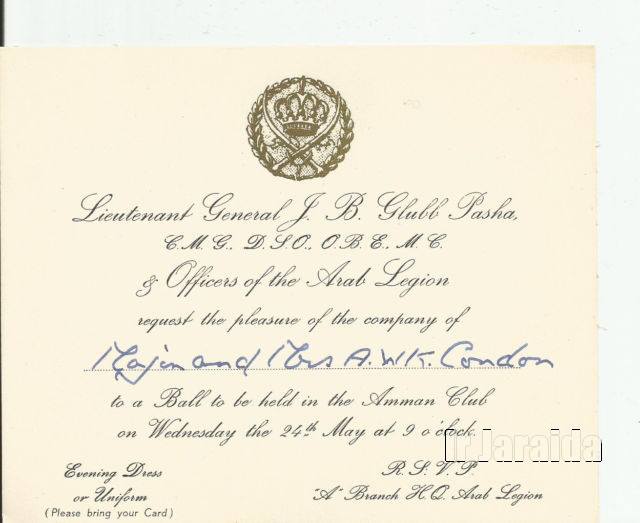 Lieutenant General J. B. Glubb Pasha,
C.M.G., D.S.O., O.B.E., M.C.
& Officers of the Arab Legion
request the pleasure of the company of
Major and Mrs A.W.K. Condon
to a Ball to be held in the Amman Club
on Wednesday the 24th May at 9 o'clock.
Evening Dress
or Uniform
(Please bring your Card)
R.S.V.P.
"A" Branch H.Q. Arab Legion
Jaraida